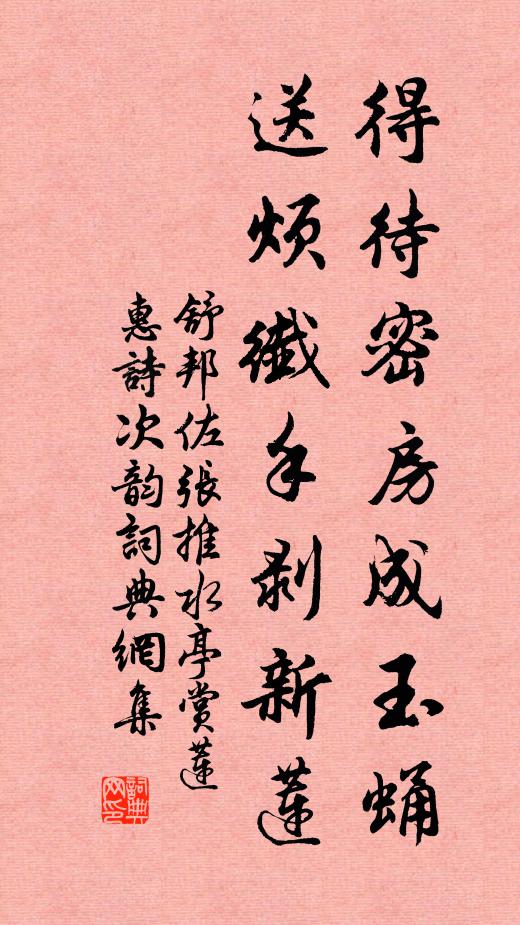 得待密房成玉蛹
送烦纖手剥新蓮
舒邦佐張推水亭賞蓮
惠詩次韵詞典網集
詞典
网印